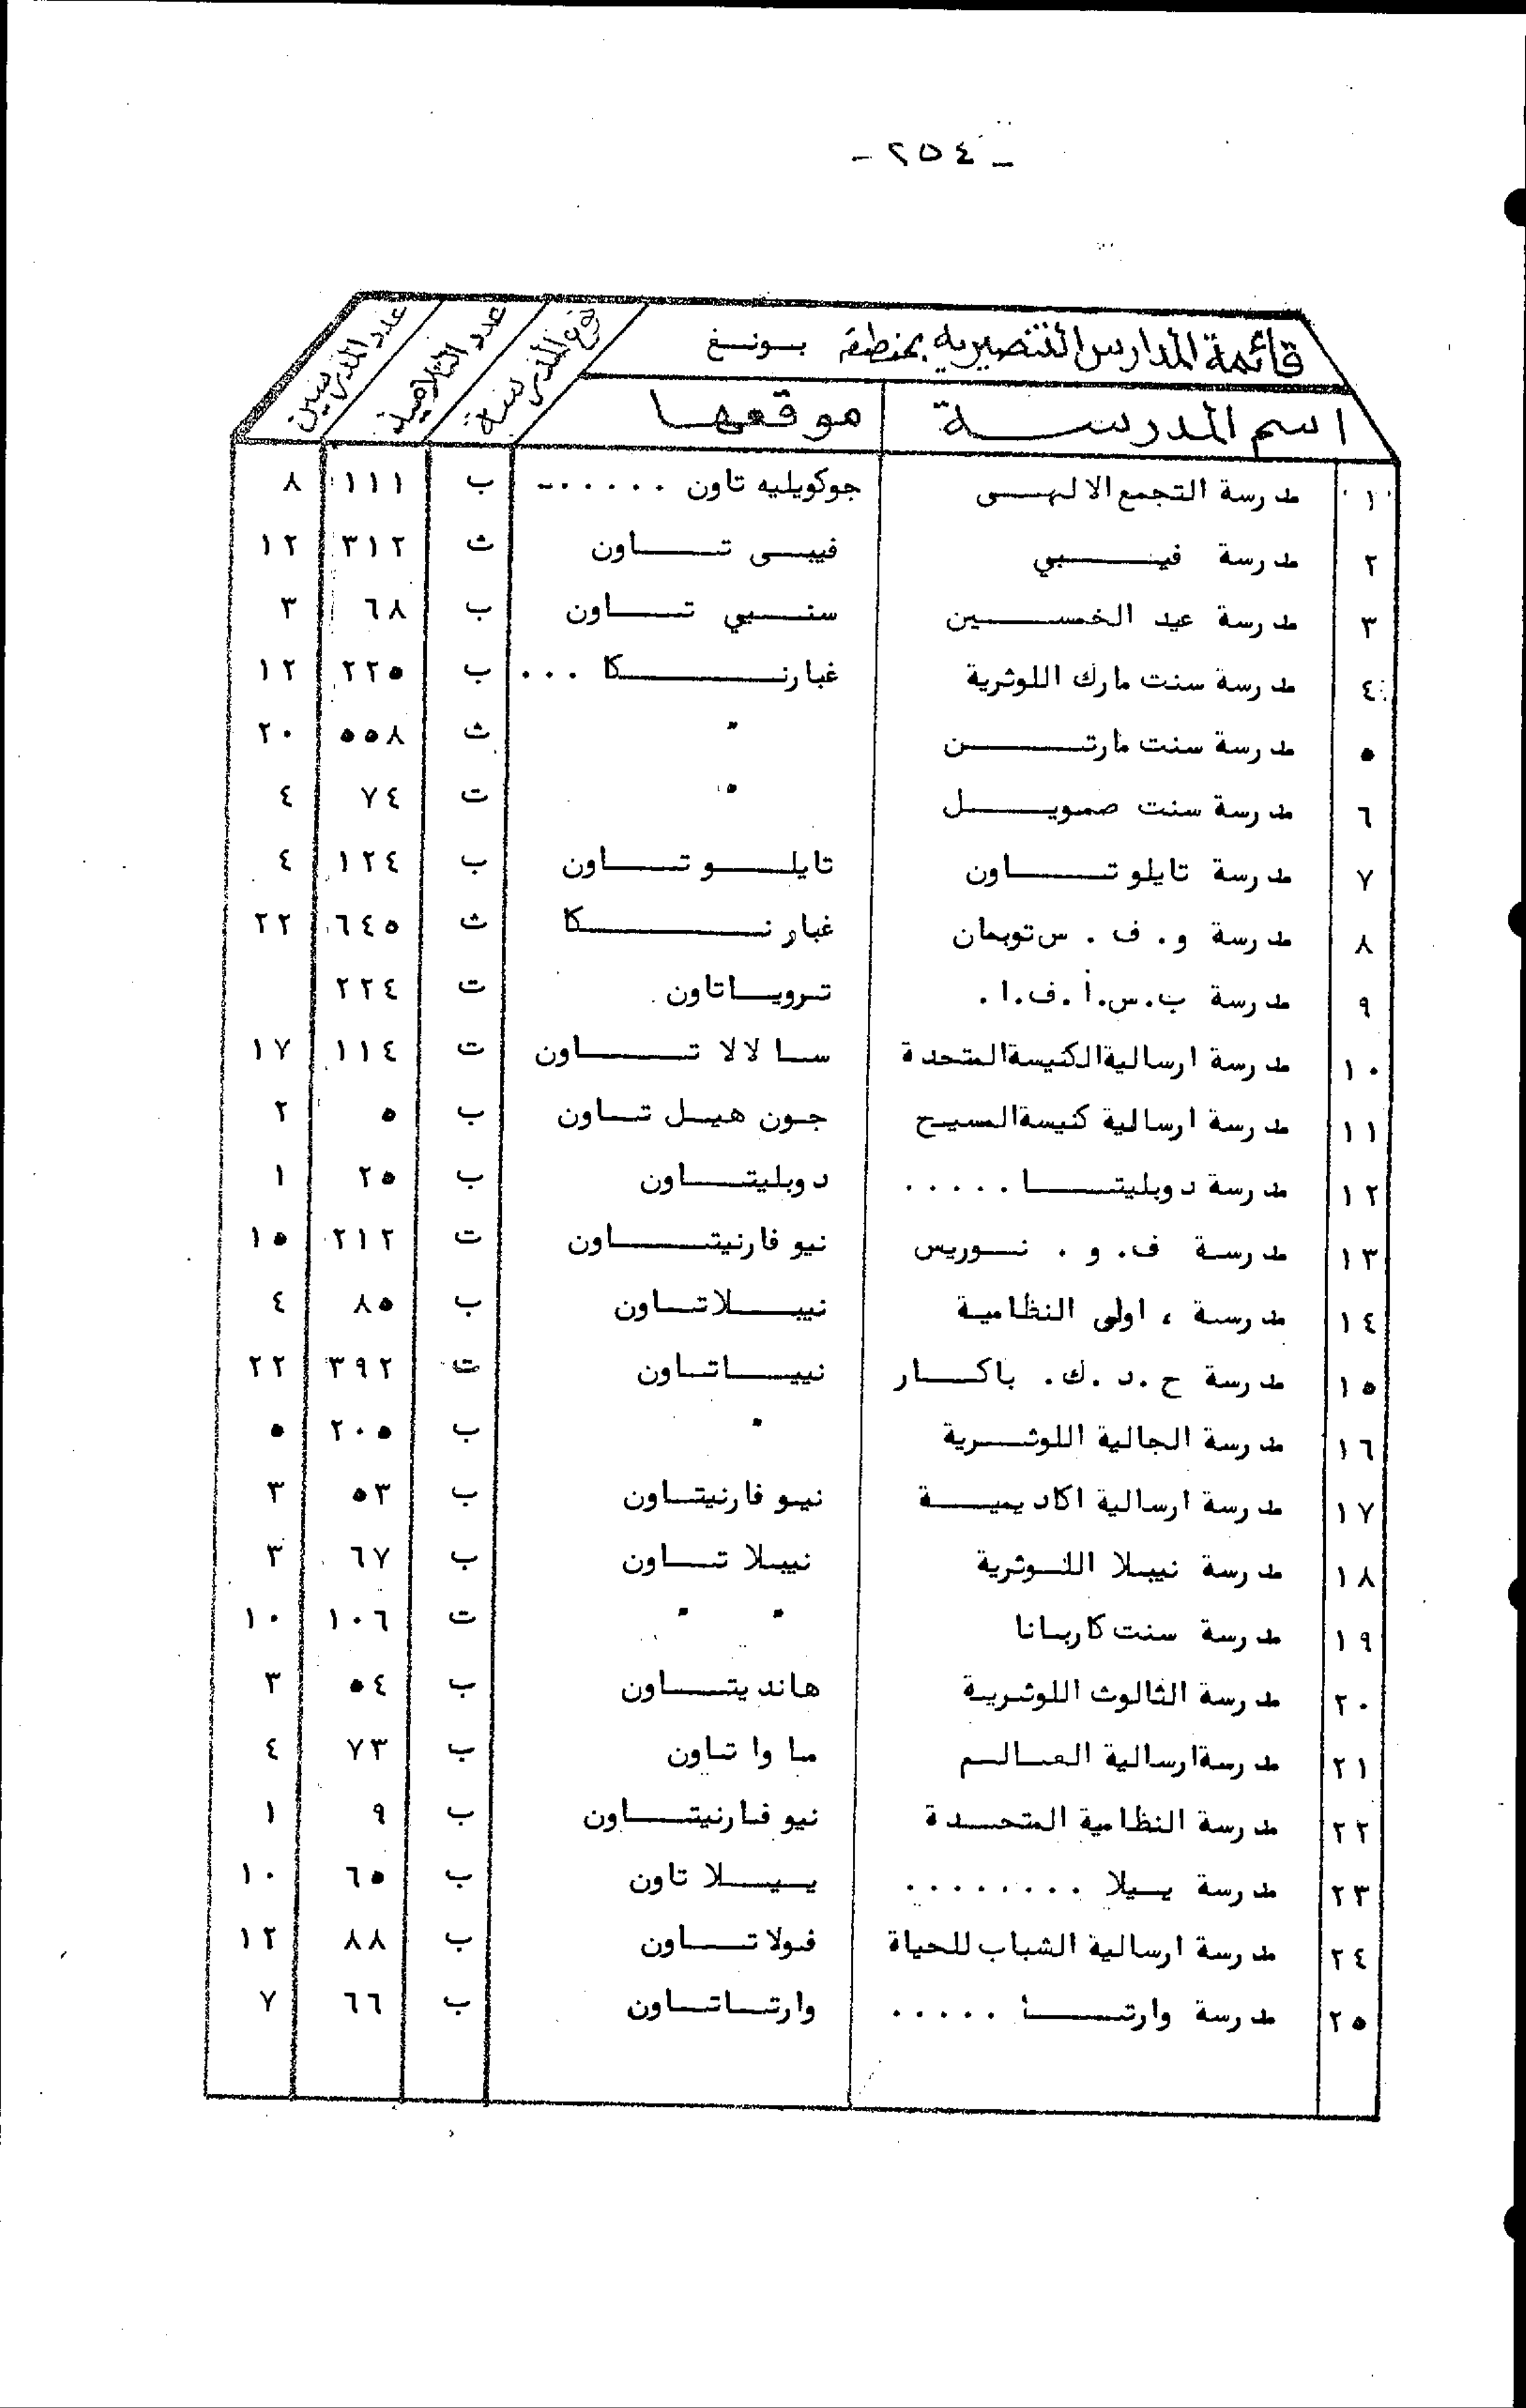 - ٢٥٤ -
قائمة المدارس التنصيرية بمنطقة بونغ
اسم المدرسة موقعها نوع المدرسة عدد التلاميذ عدد المدرسين
١ مدرسة التجمع الالهى جوكويليه تاون ...... ب ١١١ ٨
٢ مدرسة فيبي فيبى تاون ث ٣١٢ ١٢
٣ مدرسة عيد الخمسين سنبي تاون ب ٦٨ ٣
٤ مدرسة سنت مارك اللوثرية غبارنكا ... ب ٢٢٥ ١٢
٥ مدرسة سنت مارتن " ث ٥٥٨ ٢٠
٦ مدرسة سنت صمويل " ت ٧٤ ٤
٧ مدرسة تايلو تاون تايلو تاون ب ١٢٤ ٤
٨ مدرسة و. ف. س توبمان غبارنكا ث ٦٤٥ ٢٢
٩ مدرسة ب.س.أ.ف.ا. ترويباتاون ت ٢٢٤
١٠ مدرسة ارسالية الكنيسة المتحدة سالالا تاون ت ١١٤ ١٧
١١ مدرسة ارسالية كنيسة المسيح جون هيل تاون ب ٥ ٢
١٢ مدرسة دوبليتا ..... دوبليتاون ب ٢٥ ١
١٣ مدرسة ف. و. نوريس نيو فارنيتاون ت ٢١٢ ١٥
١٤ مدرسة ، اولى النظامية نيبلاتاون ب ٨٥ ٤
١٥ مدرسة ح.د.ك. باكار نيياتاون ت ٣٩٢ ٢٢
١٦ مدرسة الجالية اللوثرية " ب ٢٠٥ ٥
١٧ مدرسة ارسالية اكاديمية نيو فارنيتاون ب ٥٣ ٣
١٨ مدرسة نيبلا اللوثرية نيبلا تاون ب ٦٧ ٣
١٩ مدرسة سنت كاربانا " " ت ١٠٦ ١٠
٢٠ مدرسة الثالوث اللوثرية هانديتاون ب ٥٤ ٣
٢١ مدرسة ارسالية العالم ما وا تاون ب ٧٣ ٤
٢٢ مدرسة النظامية المتحدة نيو فارنيتاون ب ٩ ١
٢٣ مدرسة ييلا ........ ييلا تاون ب ٦٥ ١٠
٢٤ مدرسة ارسالية الشباب للحياة فولا تاون ب ٨٨ ١٢
٢٥ مدرسة وارتا ..... وارتاتاون ب ٦٦ ٧